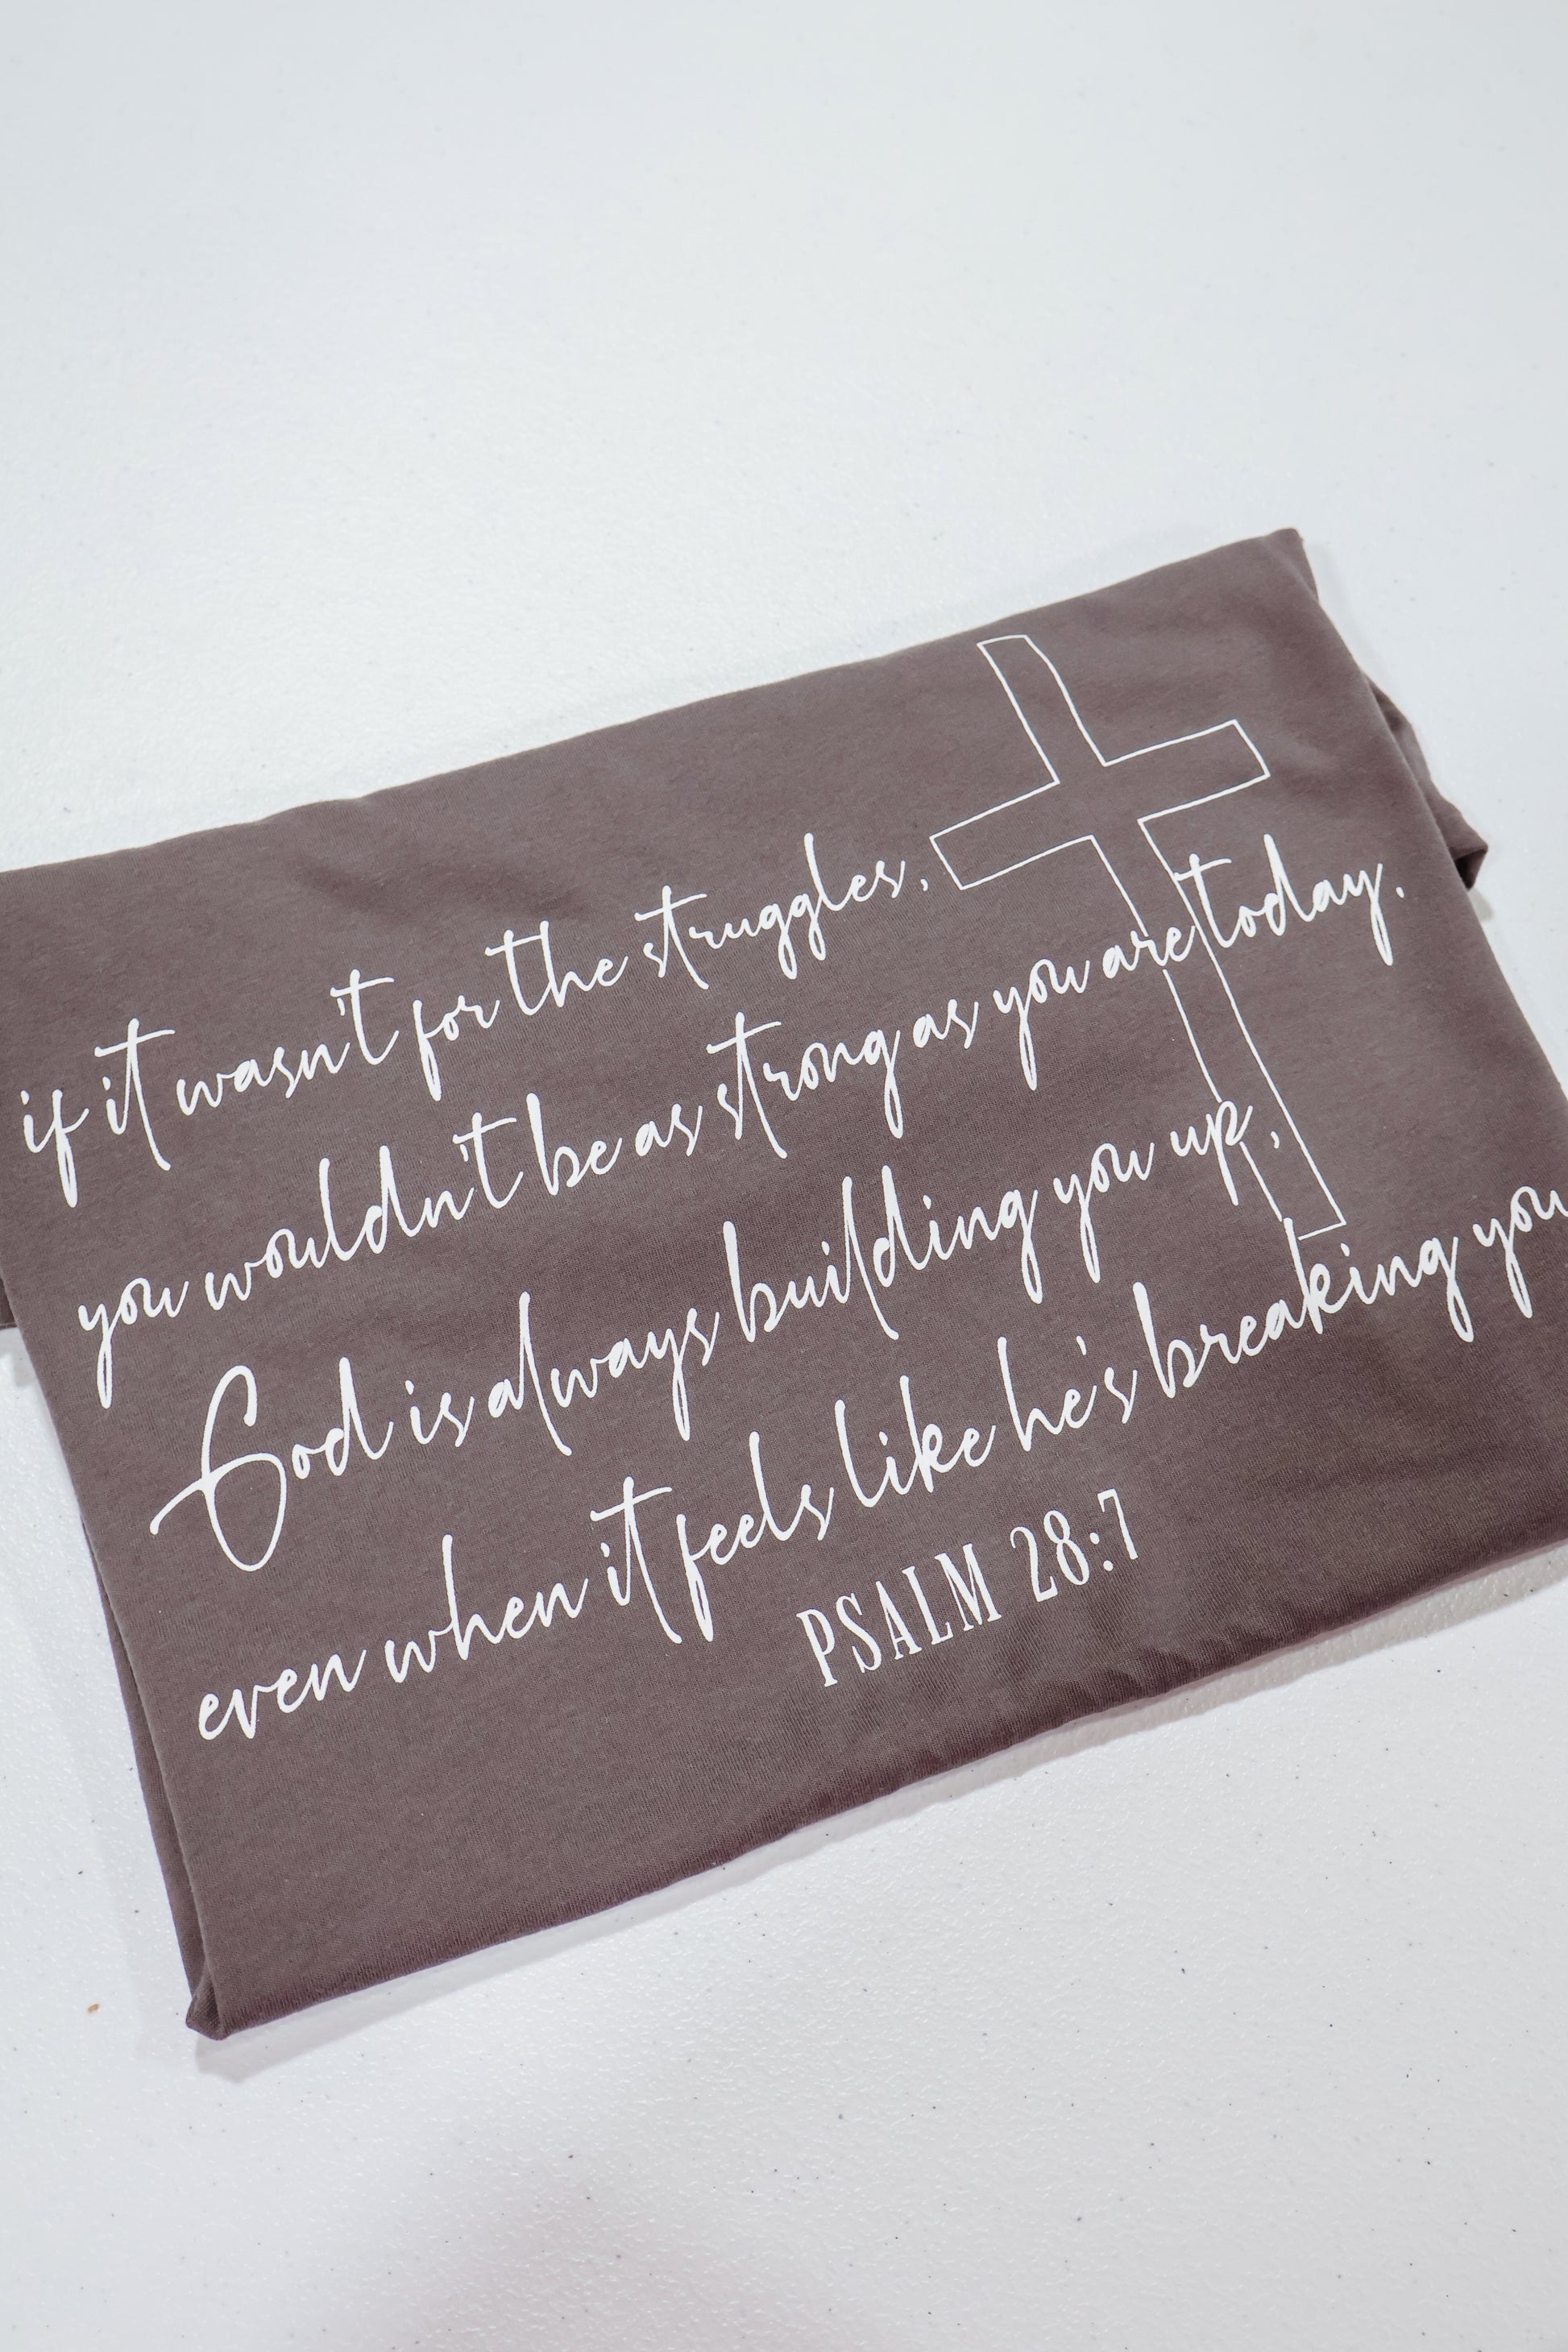 if it wasn't for the struggles,
you wouldn't be as strong as you are today.
God is always building you up,
even when it feels like he's breaking you
PSALM 28:7